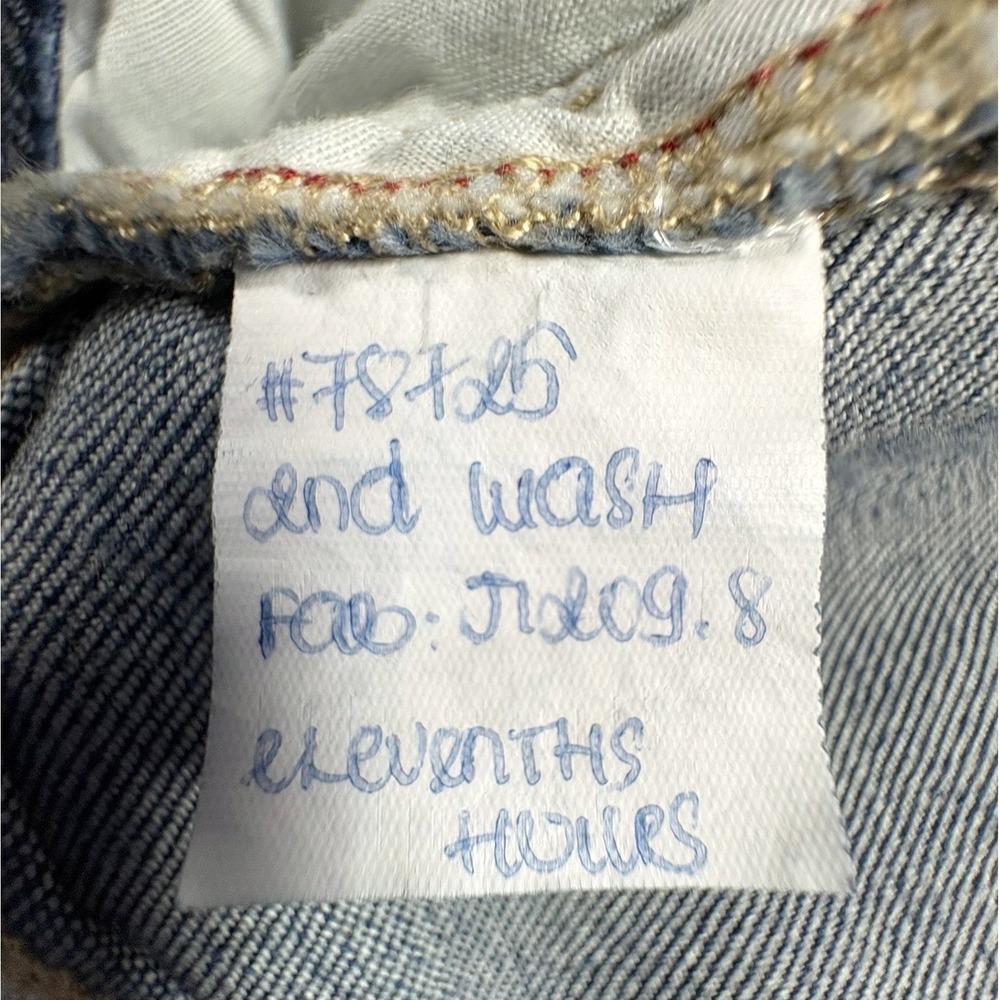 #78725
2nd wash
Fab: J1209.8
elevenths
Hours